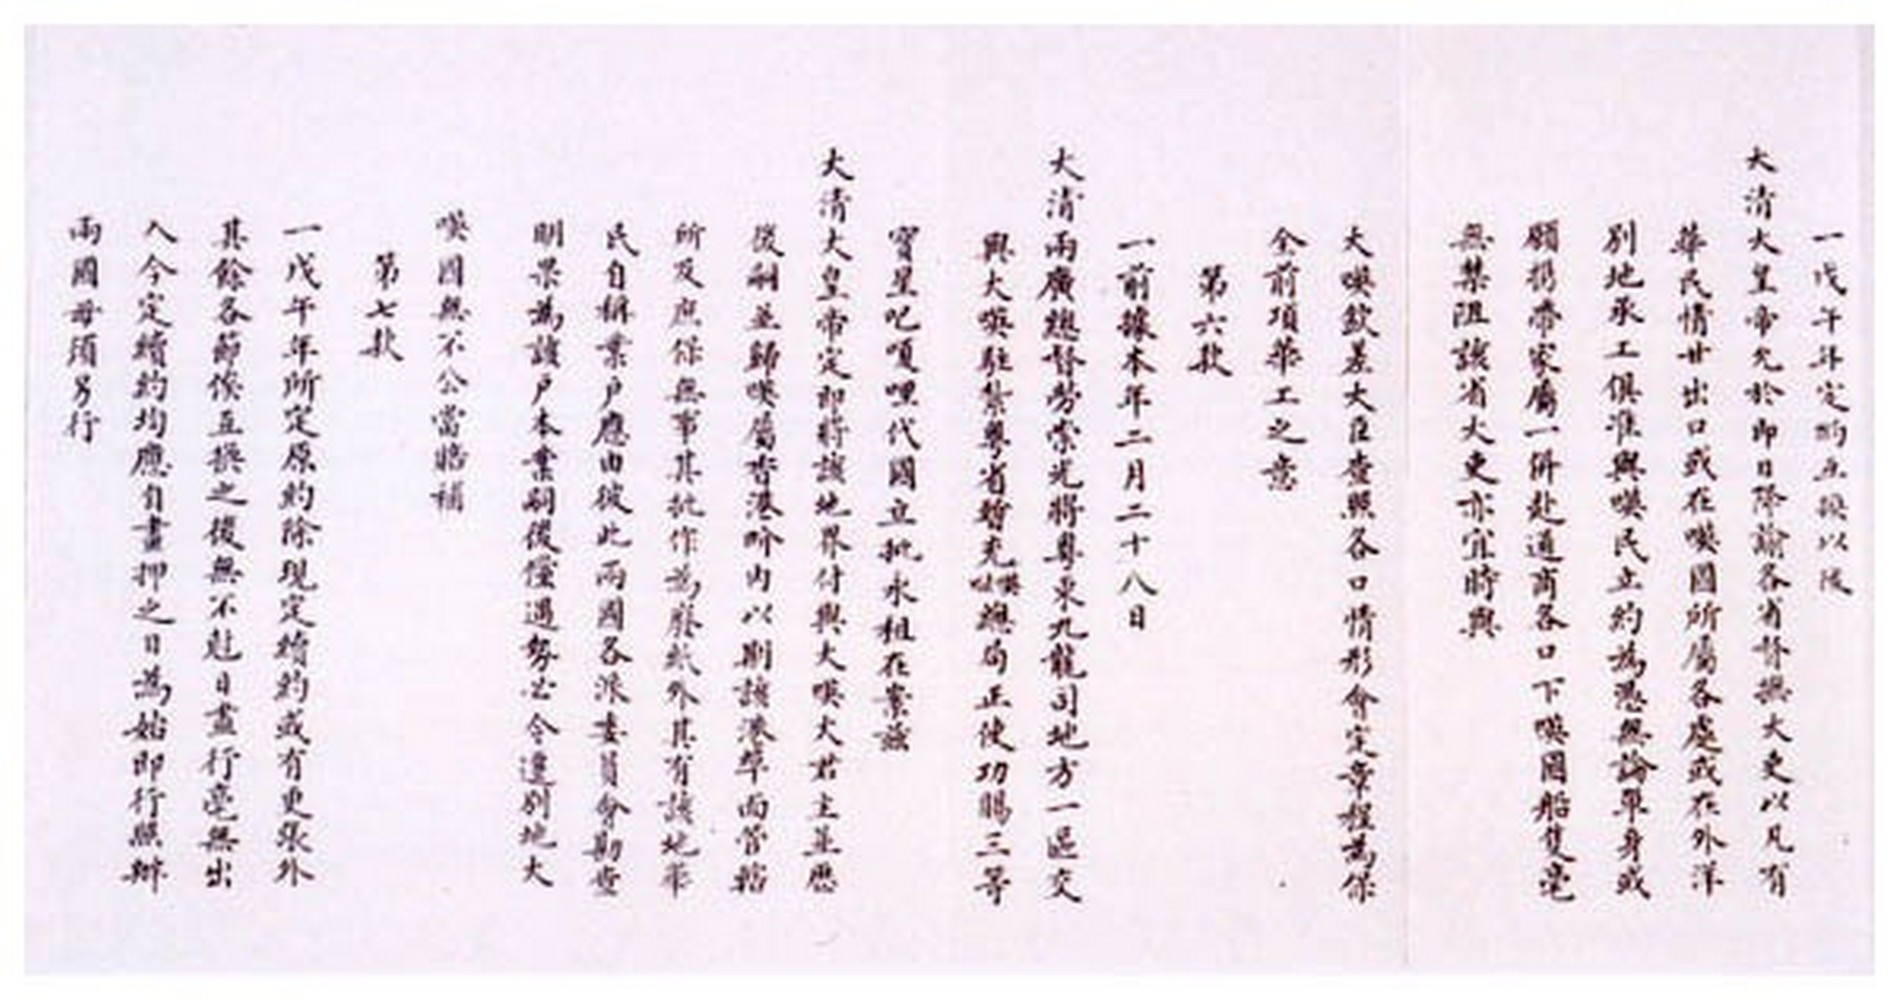 一戊午年定約互換以後
大清大皇帝允於即日降諭各省督撫大吏以凡有
華民情甘出口或在𠸄國所屬各處或在外洋
別地承工俱准與𠸄民立約為憑無論單身或
願携帶家屬一併赴通商各口下𠸄國船隻毫
無禁阻該省大吏亦宜時與
大𠸄欽差大臣查照各口情形會定章程為保
全前項華工之意
第六款
一前據本年二月二十八日
大清兩廣總督勞崇光將粵東九龍司地方一區交
與大𠸄駐紮粵省暫充𠸄𠵽總局正使功賜三等
寶星吧嗄哩代國立批永租在案茲
大清大皇帝定即將該地界付與大𠸄大君主並歷
後嗣並歸𠸄屬香港界內以期該港埠面管轄
所及庶保無事其批作為廢紙外其有該地華
民自稱業戶應由彼此兩國各派委員會勘查
明果為該戶本業嗣後倘遇勢必令遷別地大
𠸄國無不公當賠補
第七款
一戊午年所定原約除現定續約或有更張外
其餘各節俟互換之後無不尅日盡行毫無出
入今定續約均應自畫押之日為始即行照辦
兩國毋須另行